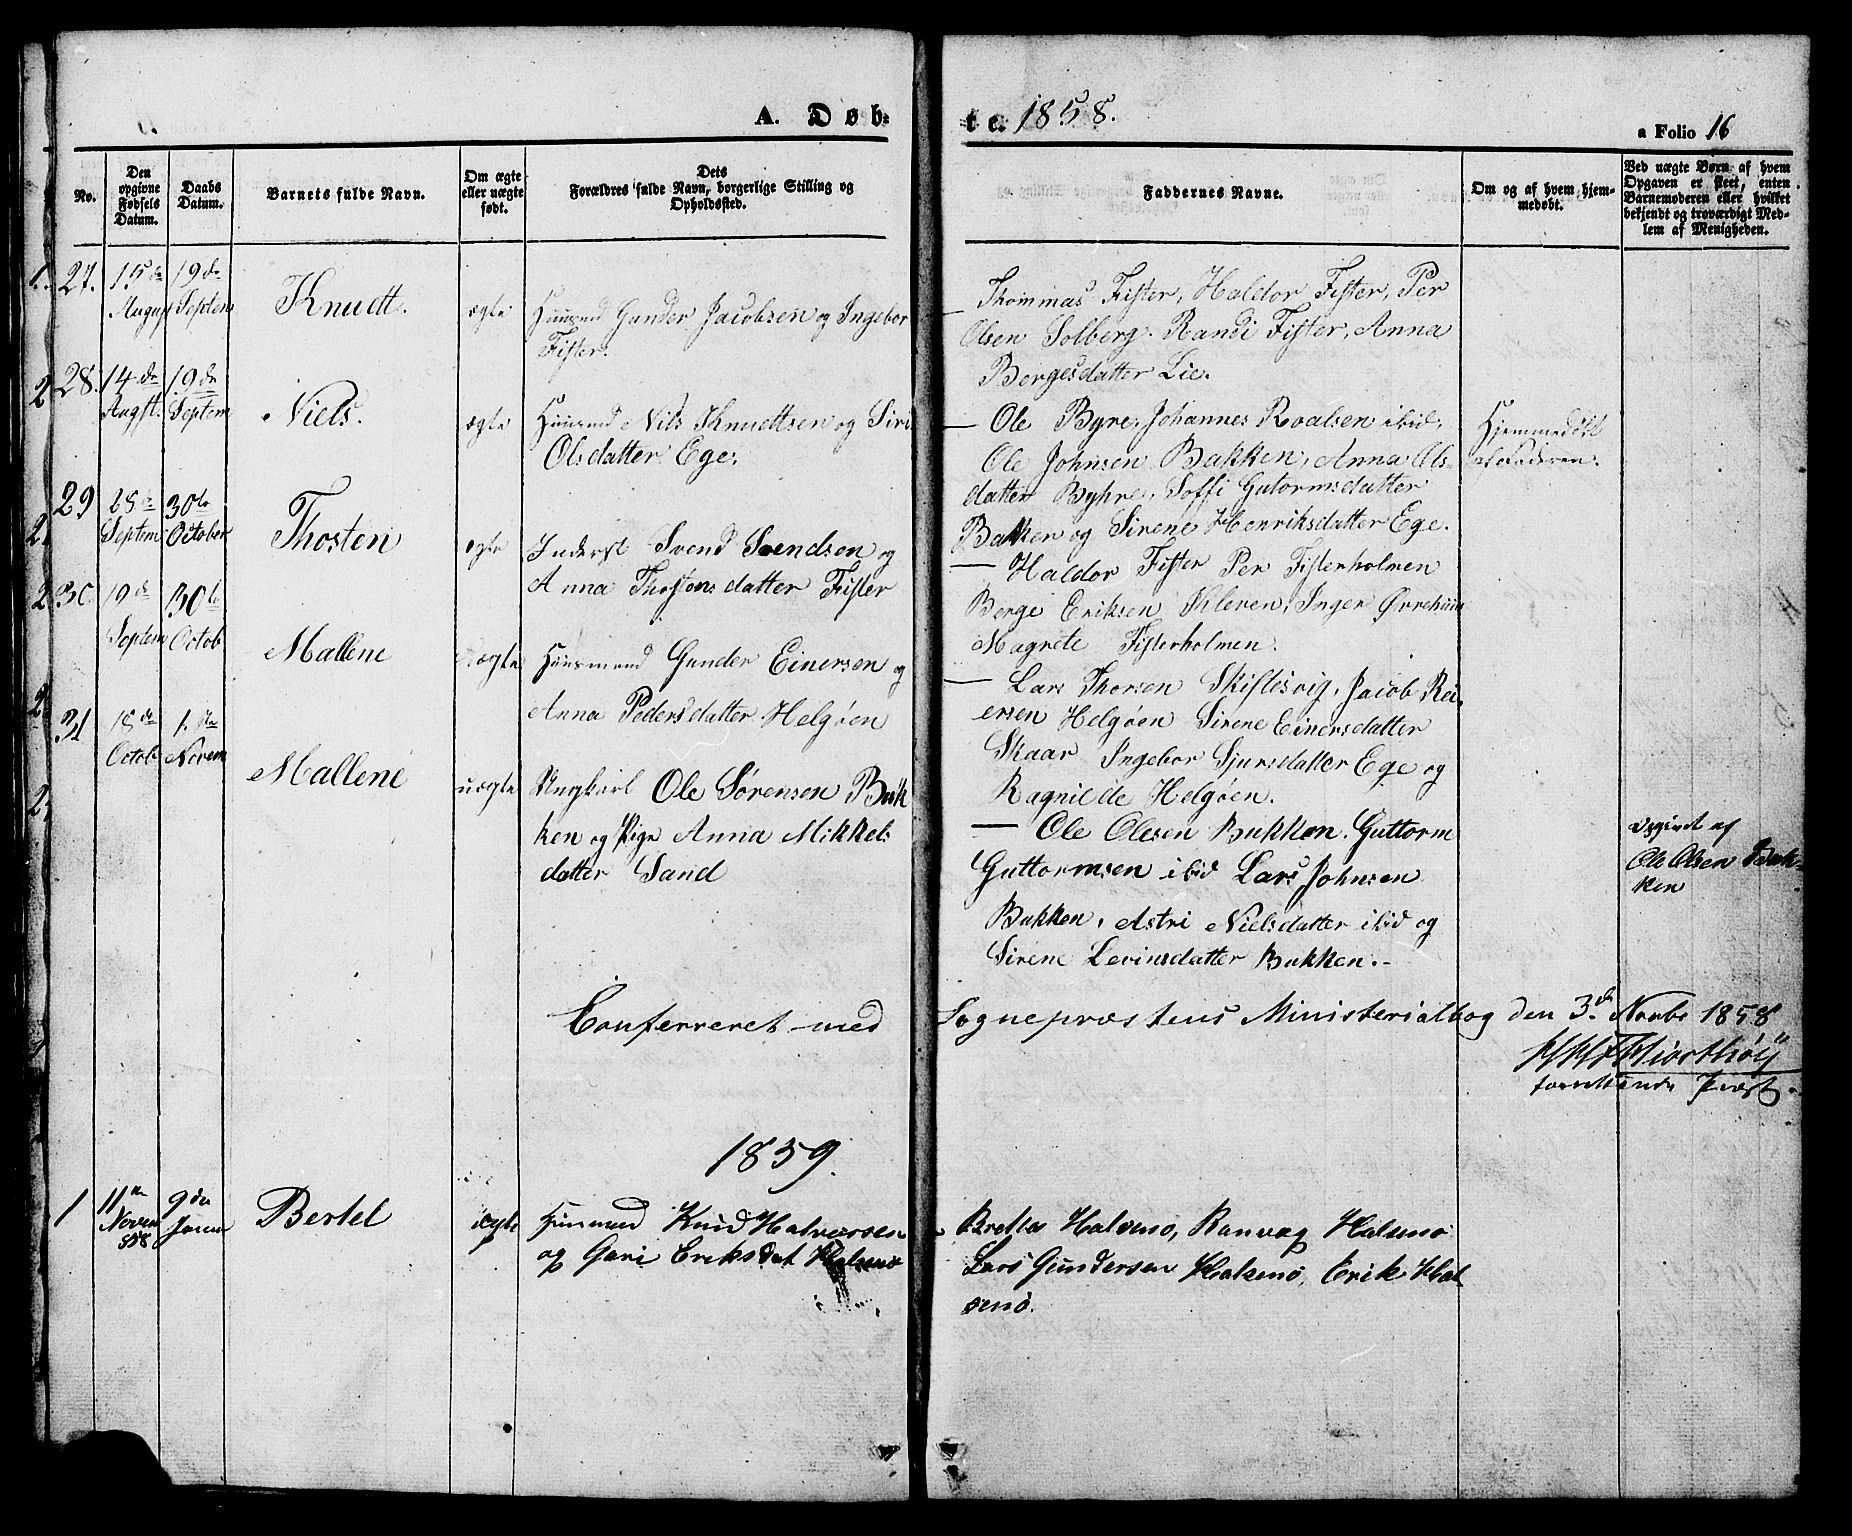 A. Døb-
te. 1858.
a Folio 16
No.
Den opgivne Fødsels Datum.
Daabs Datum.
Barnets fulde Navn.
Om ægte eller uægte født.
Dets Forældres fulde Navn, borgerlige Stilling og Opholdssted.
Faddernes Navne.
Om og af hvem hjemmedøbt.
Ved uægte Børn af hvem Opgaven er skeet, enten Barnemoderen eller hvilket bekjendt og troværdigt Medlem af Menigheden.
27. 15de August 19de Septem
Knudt.
ægte
Huusmd Gunder Jacobsen og Ingebor
Fister.
Thommas Fister, Haldor Fister, Per
Olsen Solberg. Randi Fister, Anna
Bergesdatter Lie.
28. 14de Augst. 19de Septem
Niels.
ægte
Huusmd Nils Knudtsen og Siri
Olsdatter Ege.
— Ole Byre, Johannes Roalsen ibid,
Ole Johnsen Bakken, Anna Ols-
datter Byhre, Soffi Gutormsdatter
Bakken og Sirene Henriksdatter Ege.
Hjemmedøbt
af Faderen.
29 Septem 30te October
Thosten
ægte
Inderst Svend Svendsen og
Anna Thostensdatter Fister
— Haldor Fister Per Fisterholmen
Berge Eriksen Kleven, Inger
Magrete Fisterholmen.
30. 19de Septem 30te Octob
Mallene
ægte
Huusmand Gunder Einersen og
Anna Pedersdatter Helgøen
— Lars Thorsen Skiftesvig, Jacob Rei-
ersen Helgøen Sirene Einersdatter
Skaar Ingebor Sjursdatter Ege og
Ragnilde Helgøen.
31 18de Octob 1.ste Novem
Mallene
uægte
Ungkarl Ole Sørensen Bak
ken og Pige Anna Mikkels
datter Sand
— Ole Olesen Bakken. Guttorm
Guttormsen ibid Lars Johnsen
Bakken, Astri Nielsdatter ibid og
Sirene Levinsdatter Bakken.-
opgivet af
Ole Olsen Bak-
ken
Conferreret med Sogneprestens Ministerialbog den 3de Novbr 1858
Hiorthøy
forrettende Prest.
1859.
1 11te Novem 858 9de Januar
Bertel
ægte
Huusmand Knud Halvorsen
og Gari Eriksdat Halsnø
Halsnø, Ranvag Halsnø
Lars Gundersen Halsnø, Erik Hal
snø.